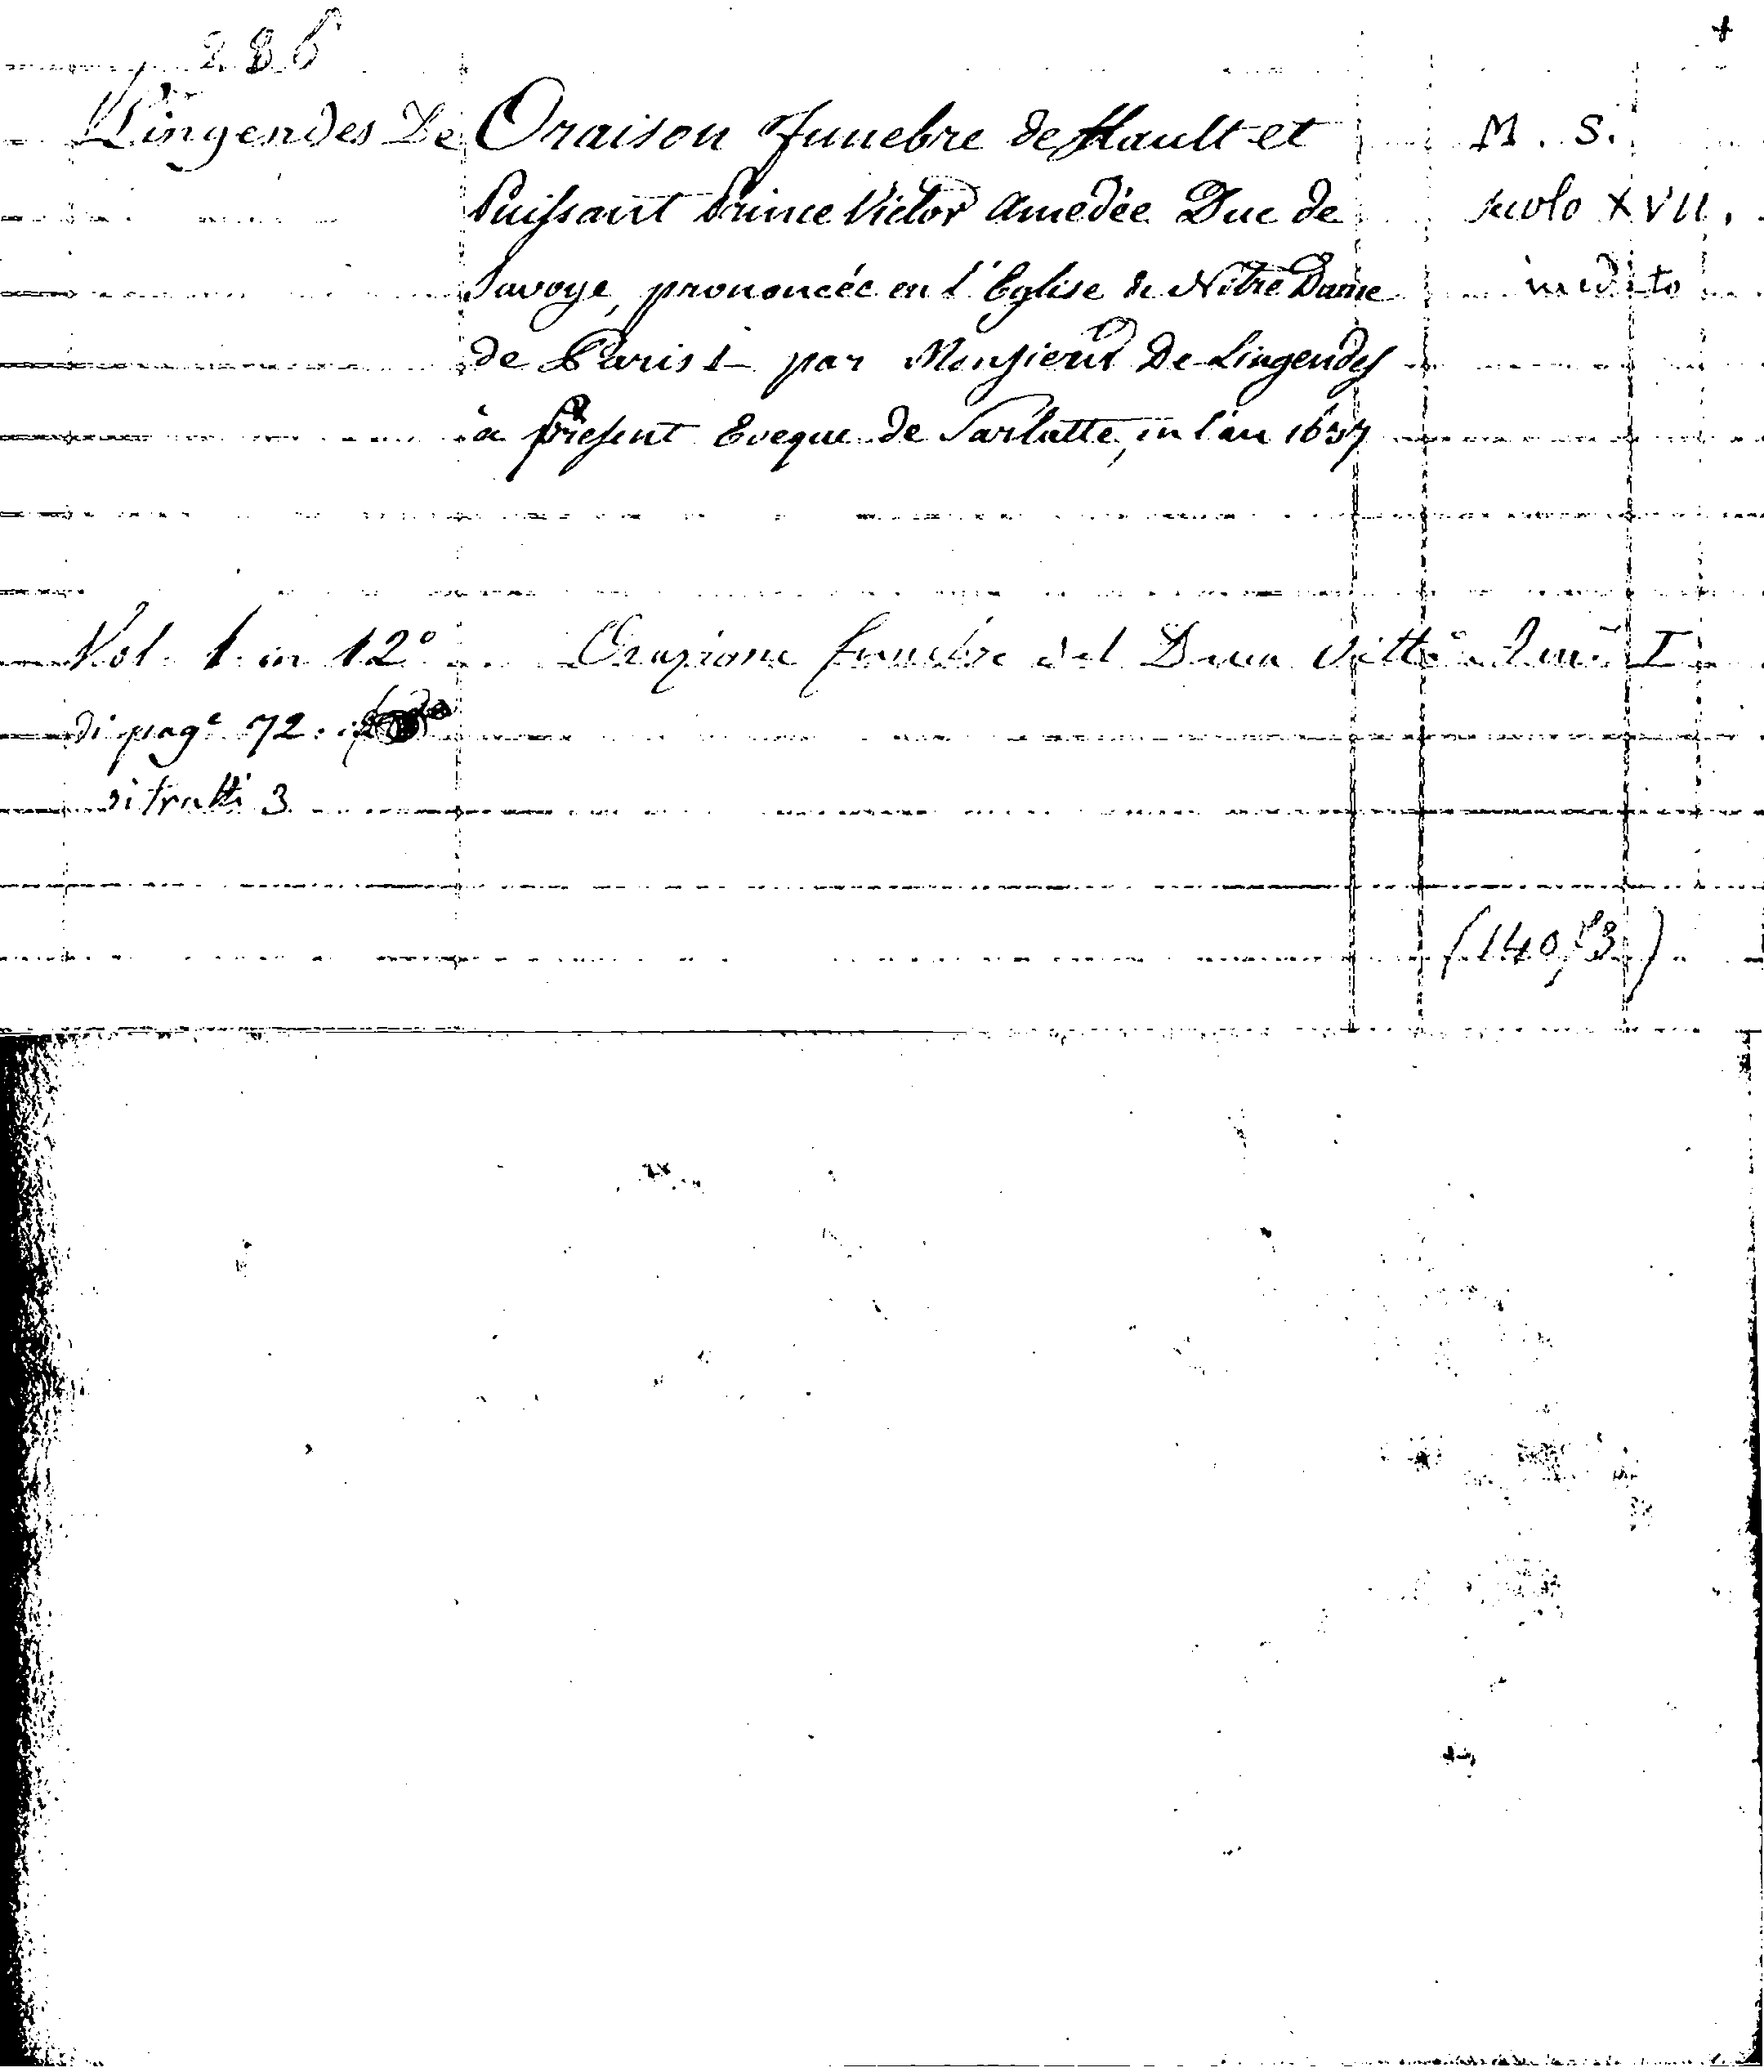 286
+
Lingendes De Oraison Funebre de Hault et M. S.
Puissant Prince Victor Amedée Duc de secolo XVII.
Savoye, prononcée en l'Eglise de Notre Dame inedito
de Paris par Monsieur De Lingendes
à present Eveque de Sarlatte, in l'an 1637
Vol. 1 in 12° Orazione funebre del Duca Vitt° Ame° I
di pag.e 72.
ritratti 3